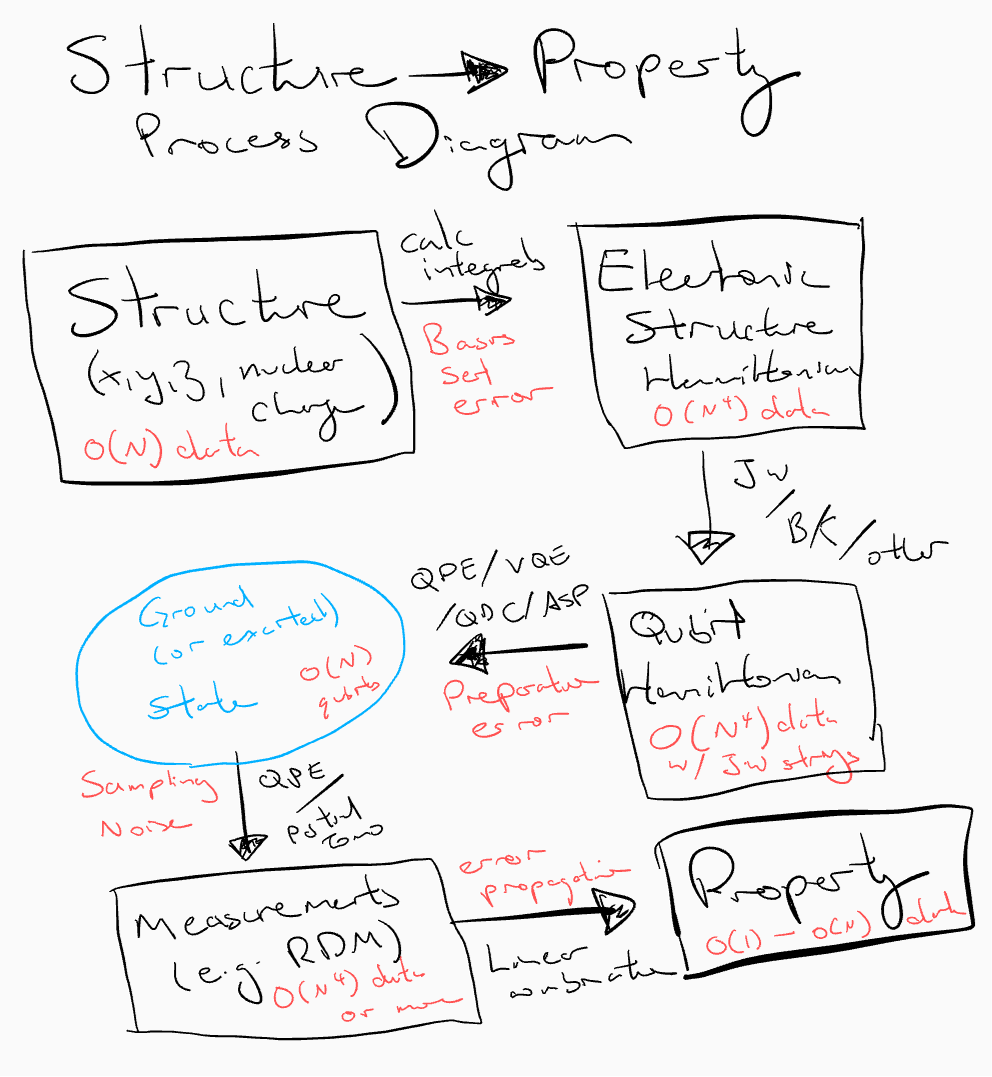 Structure → Property
Process Diagram
Structure
(x,y,z, nuclear
charge)
O(N) data
calc
integrals
Basis
set
error
Electronic
Structure
Hamiltonian
O(N⁴) data
JW
/BK/other
Qubit
Hamiltonian
O(N⁴) data
w/ JW strings
QPE/VQE
/QDC/ASP
Preparation
error
Ground
(or excited)
State
O(N)
qubits
Sampling
Noise
QPE
/
partial
Tomo
Measurements
(e.g. RDM)
O(N⁴) data
or more
error
propagation
Linear
combination
Property
O(1) – O(N) data